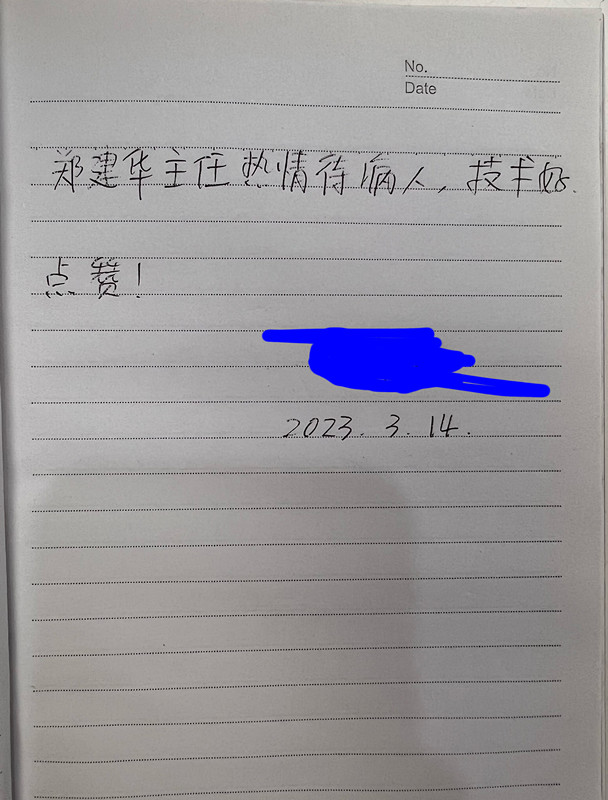 No.
Date
郑建华主任热情待病人,技术好.
点赞!
2023.3.14.